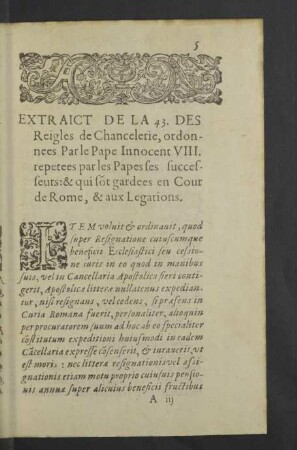 5
EXTRAICT DE LA 43. DES
Reigles de Chancelerie, ordon-
nees Par le Pape Innocent VIII.
repetees par les Papes ses succes-
seurs: & qui sõt gardees en Cour
de Rome, & aux Legations.
ITEM voluit & ordinauit, quod
super Resignatione cuiuscumque
beneficii Ecclesiastici seu cessio-
ne iuris in eo quod in manibus
suis, vel in Cancellaria Apostolica fieri conti-
gerit, Apostolicæ litteræ nullatenus expedian-
tur, nisi resignans, vel cedens, si præsens in
Curia Romana fuerit, personaliter, alioquin
per procuratorem suum ad hoc ab eo specialiter
cõstitutum expeditioni huiusmodi in eadem
Cãcellaria expresse cõsenserit, & iurauerit, vt
est moris: nec littera resignationis vel assi-
gnationis etiam motu proprio cuiusuis pensio-
nis annuæ super alicuius beneficii fructibus
A iij